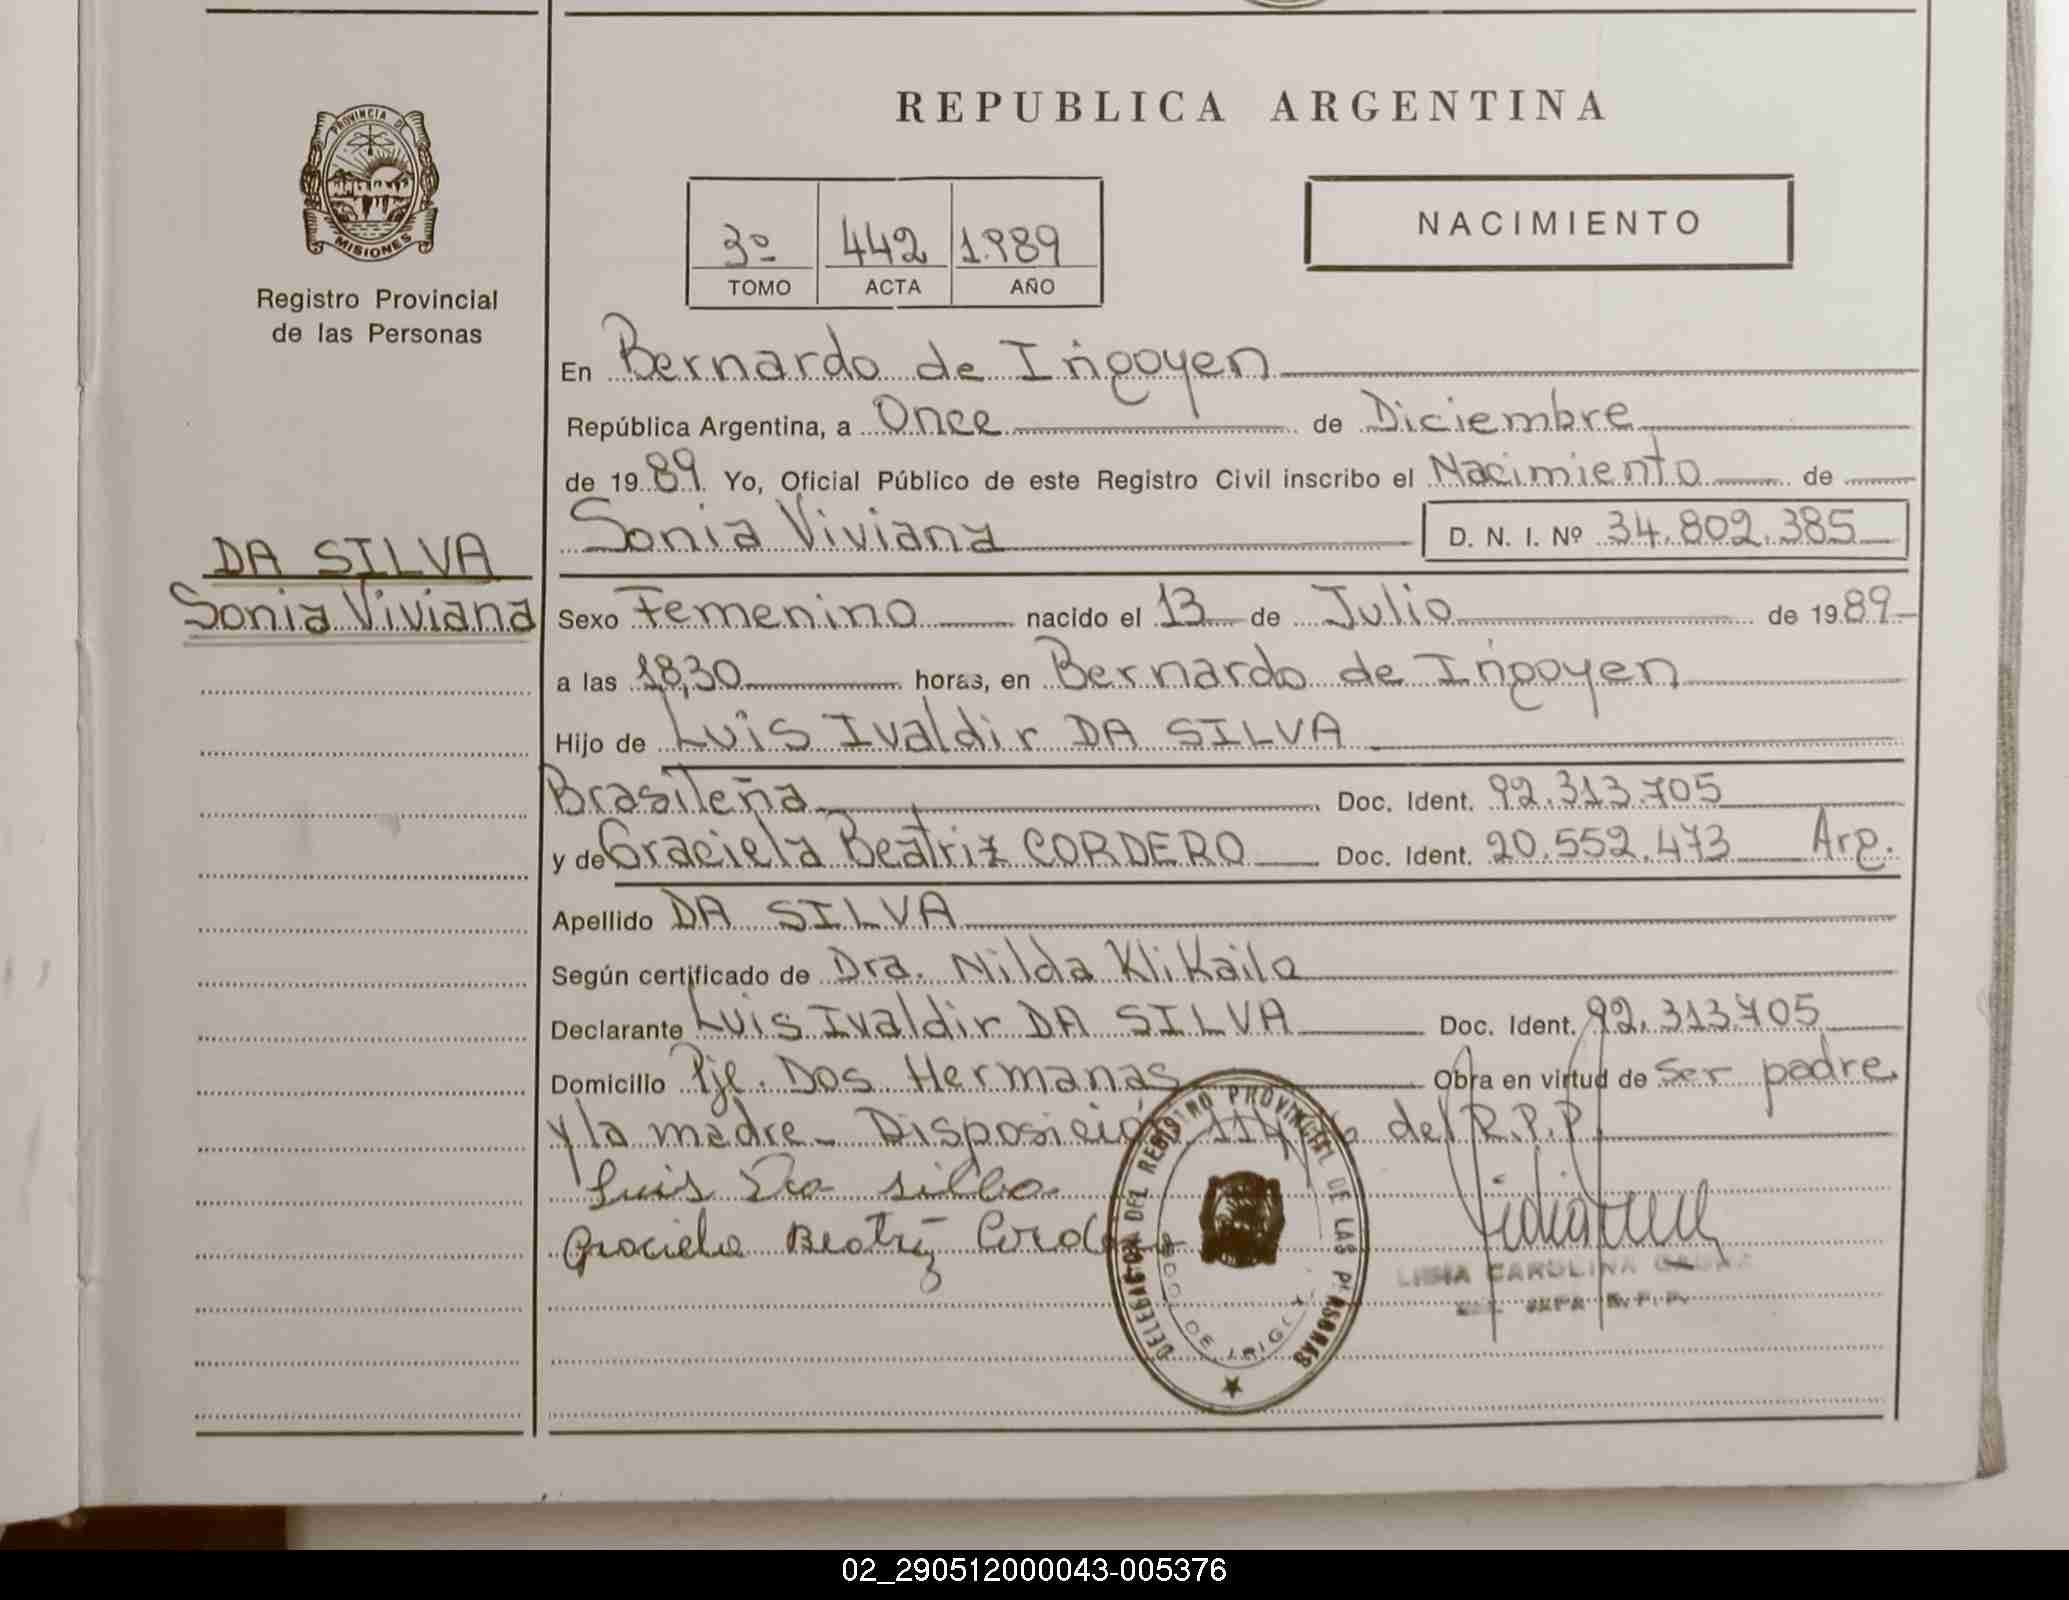 REPUBLICA ARGENTINA
PROVINCIA DE
MISIONES
Registro Provincial
de las Personas
NACIMIENTO
3º 442 1.989
TOMO ACTA AÑO
En Bernardo de Irigoyen
República Argentina, a Once de Diciembre
de 1989. Yo, Oficial Público de este Registro Civil inscribo el Nacimiento de
Sonia Viviana D. N. I. Nº 34.802.385
DA SILVA
Sonia Viviana
Sexo Femenino nacido el 13 de Julio de 1989
a las 18,30 horas, en Bernardo de Irigoyen
Hijo de Luis Ivaldir DA SILVA
Brasileña Doc. Ident. 92.313.705
y de Graciela Beatriz CORDERO Doc. Ident. 20.552.473 Arg.
Apellido DA SILVA
Según certificado de Dra. Nilda Klikailo
Declarante Luis Ivaldir DA SILVA Doc. Ident. 92.313.705
Domicilio Pje. Dos Hermanas Obra en virtud de ser padre
y la madre - Disposición del R.P.P.
Luis Da silba
Graciela Beatriz
DELEGACION DEL REGISTRO PROVINCIAL DE LAS PERSONAS
CAROLINA
02_290512000043-005376